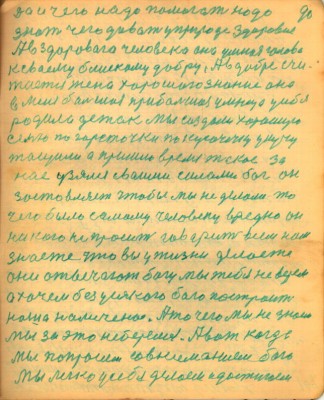 за и чего надо помогат надо
знат чего диват у природе здоровая
А в здоровага человека она умная голова
к сваему блискаму добру, А в добре счи-
таетса жена харошага знание она
в меня балшая прибалшая умнаю у себя
родила деток мы создали харашую
семю по гарсточки по кусочочку у кучу
тащили а пришло время такое за
нас узялса сваими силами бог он
заставляет чтобы мы не делали то
чего было самаму человеку вредно он
никого не просит гаварит всем нам
знаете что вы у жизни делаете
они отвечают богу мы тебя не верем
а хочем без усякого бога построит
наша намеченое. А то чего мы не знаем
мы за это не беремса. А вот когда
мы попросем со вниманием бога
мы легко у себя делаем и достигаем